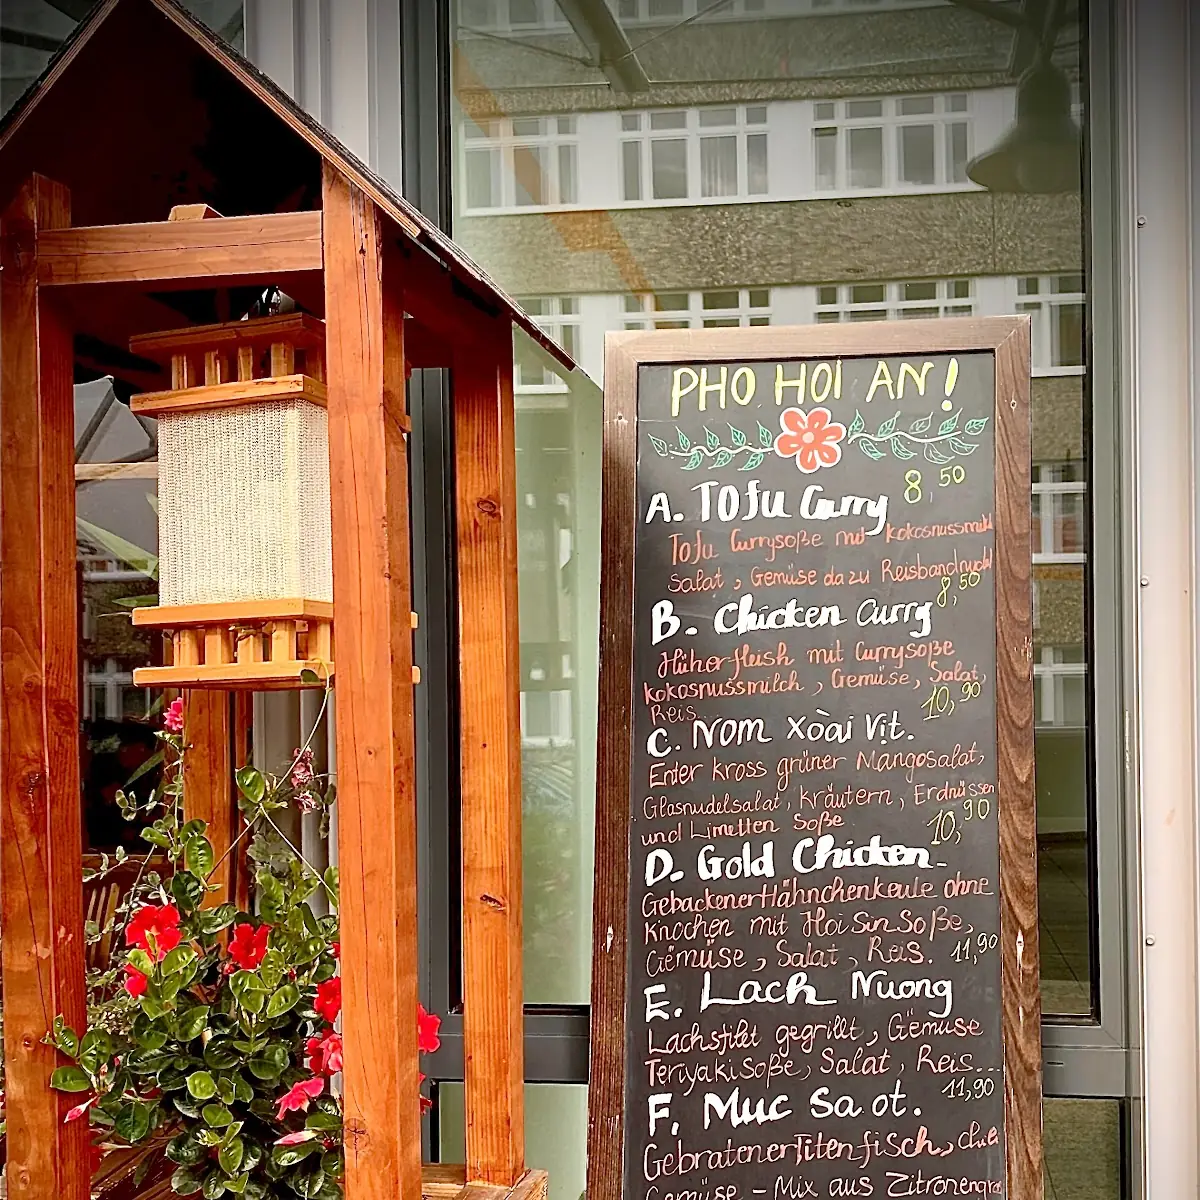 PHO HOI AN!
A. Tofu Curry 8,50
Tofu Currysoße mit kokosnussmilch
Salat, Gemüse dazu Reisbandnudel
8,50
B. Chicken Curry
Hüherfleish mit Currysoße
kokosnussmilch, Gemüse, Salat,
Reis... 10,90
C. Nom xoài vịt.
Enter kross grüner Mangosalat,
Glasnudelsalat, kräutern, Erdnüssen
und Limetten Soße 10,90
D. Gold Chicken
Gebackener Hähnchenkeule ohne
knochen mit Hoi Sin Soße,
Gemüse, Salat, Reis. 11,90
E. Lach Nuong
Lachsfilet gegrillt, Gemüse
Teriyaki Soße, Salat, Reis...
11,90
F. Muc Sa ot.
Gebratener Titenfisch,
Gemüse - Mix aus Zitronengra